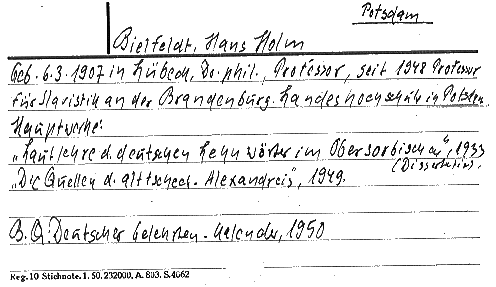 Potsdam
Bielfeldt, Hans Holm
Geb. 6.3.1907 in Lübeck, Dr. phil., Professor, seit 1948 Professor
für Slavistik an der Brandenburg. Landeshochschule in Potsdam.
Hauptwerke:
„Lautlehre d. deutschen Lehnwörter im Obersorbischen", 1933
(Dissertation).
„Die Quellen d. alttschech. Alexandreis", 1949.
B. Q.: Deutscher Gelehrten-Kalender, 1950
Reg. 10 Stichnote. 1. 50. 232000. A. 803. S. 4062